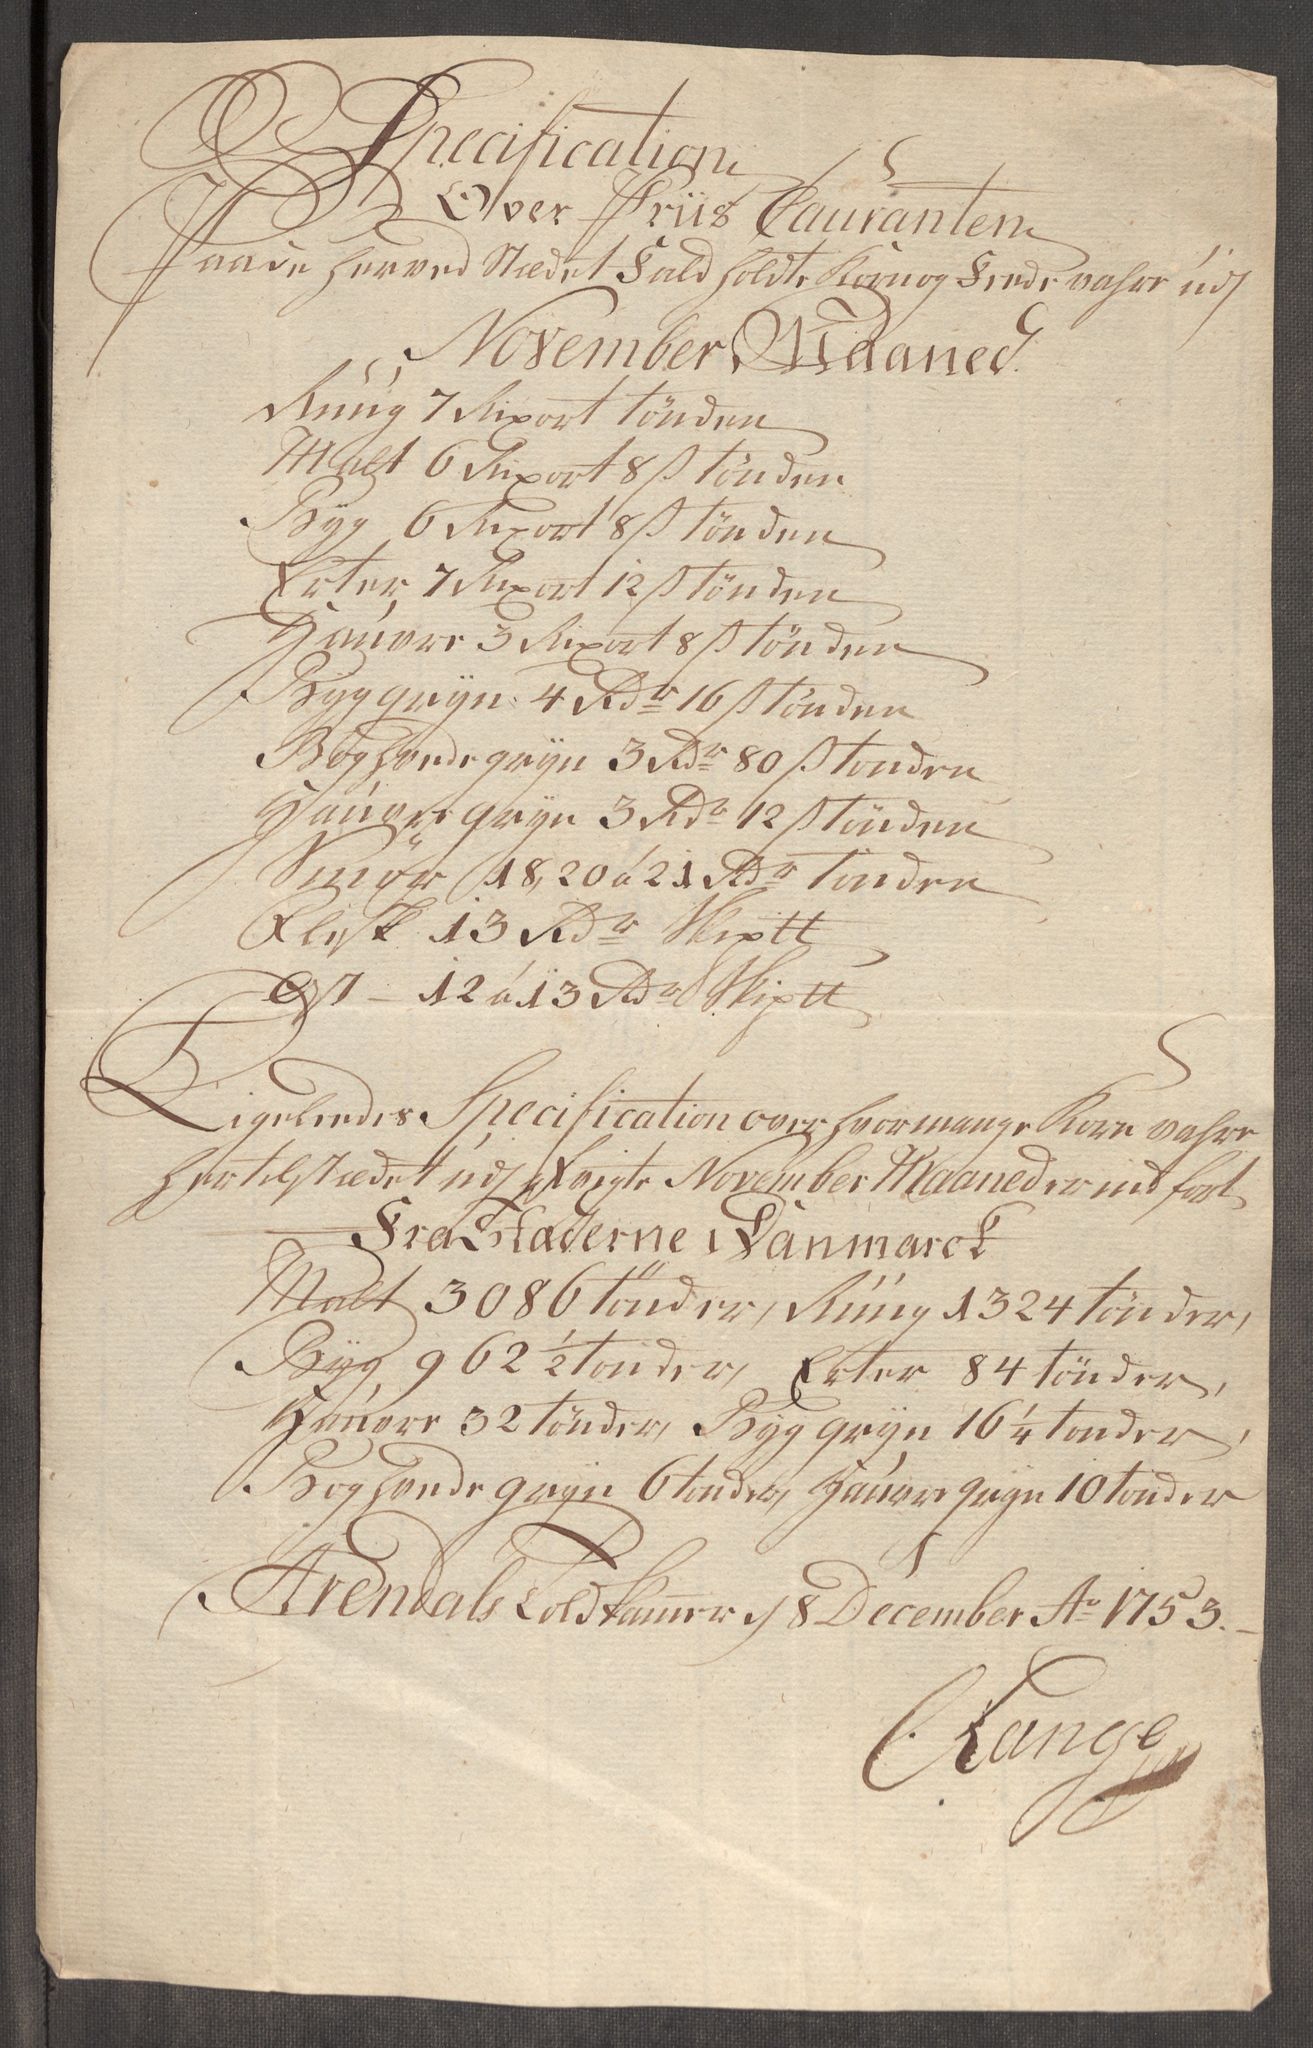 Specification
Over Priis Couranten
Paa de herved Stædet Fald holdte Korn og Feede vahre udj
November Maaned
Rúúg 7 Rixort tönden
Malt 6 Rixort 8 ß tönden
Byg 6 Rixort 8 ß tönden
Erter 7 Rixort 12 ß tönden
Haúvre 3 Rixort 8 ß tönden
Byg gryn 4 Rdr 16 ß tönden
Boghvede gryn 3 Rdr 80 ß tonden
Haúvre gryn 3 Rdr 12 ß tönden
Smör 18, 20 á 21 Rdr tönden
Flesk 13 Rdr Skptt
Ost - 12 á 13 Rdr Skiptt
Ligeleedes Specification over hvormange Korn vahre
hertilstædet udj November Maaned er ind fört
Fra Stæderne i Danmarck
Malt 3086 tönder, Rúúg 1324 tönder,
Byg 962 1/2 tonder, Erter 84 tönder,
Haúvre 32 tönder, Byg gryn 16 1/4 tonder,
Boghvede gryn 6 tonder, Haúvre gryn 10 tonder
Arendals Toldkamer d 8 December Ao 1753.
Lange